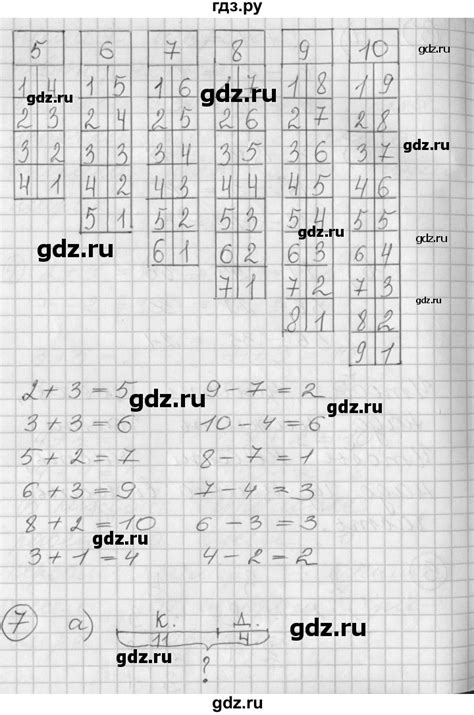 гдз.ру
5 6 7 8 9 10
1 4 1 5 1 6 1 7 1 8 1 9
gdz.ru gdz.ru
2 3 2 4 2 5 2 6 2 7 2 8
3 2 3 3 3 4 3 5 3 6 3 7
gdz.ru
4 1 4 2 4 3 4 4 4 5 4 6
5 1 5 2 5 3 5 4 5 5
gdz.ru gdz.ru
6 1 6 2 6 3 6 4
7 1 7 2 7 3
gdz.ru
8 1 8 2
9 1
2 + 3 = 5 9 - 7 = 2
gdz.ru gdz.ru
3 + 3 = 6 10 - 4 = 6
5 + 2 = 7 8 - 7 = 1
gdz.ru
6 + 3 = 9 7 - 4 = 3
8 + 2 = 10 6 - 3 = 3
gdz.ru
3 + 1 = 4 4 - 2 = 2
7 а) К. Д.
gdz.ru
11 4
gdz.ru
?
gdz.ru